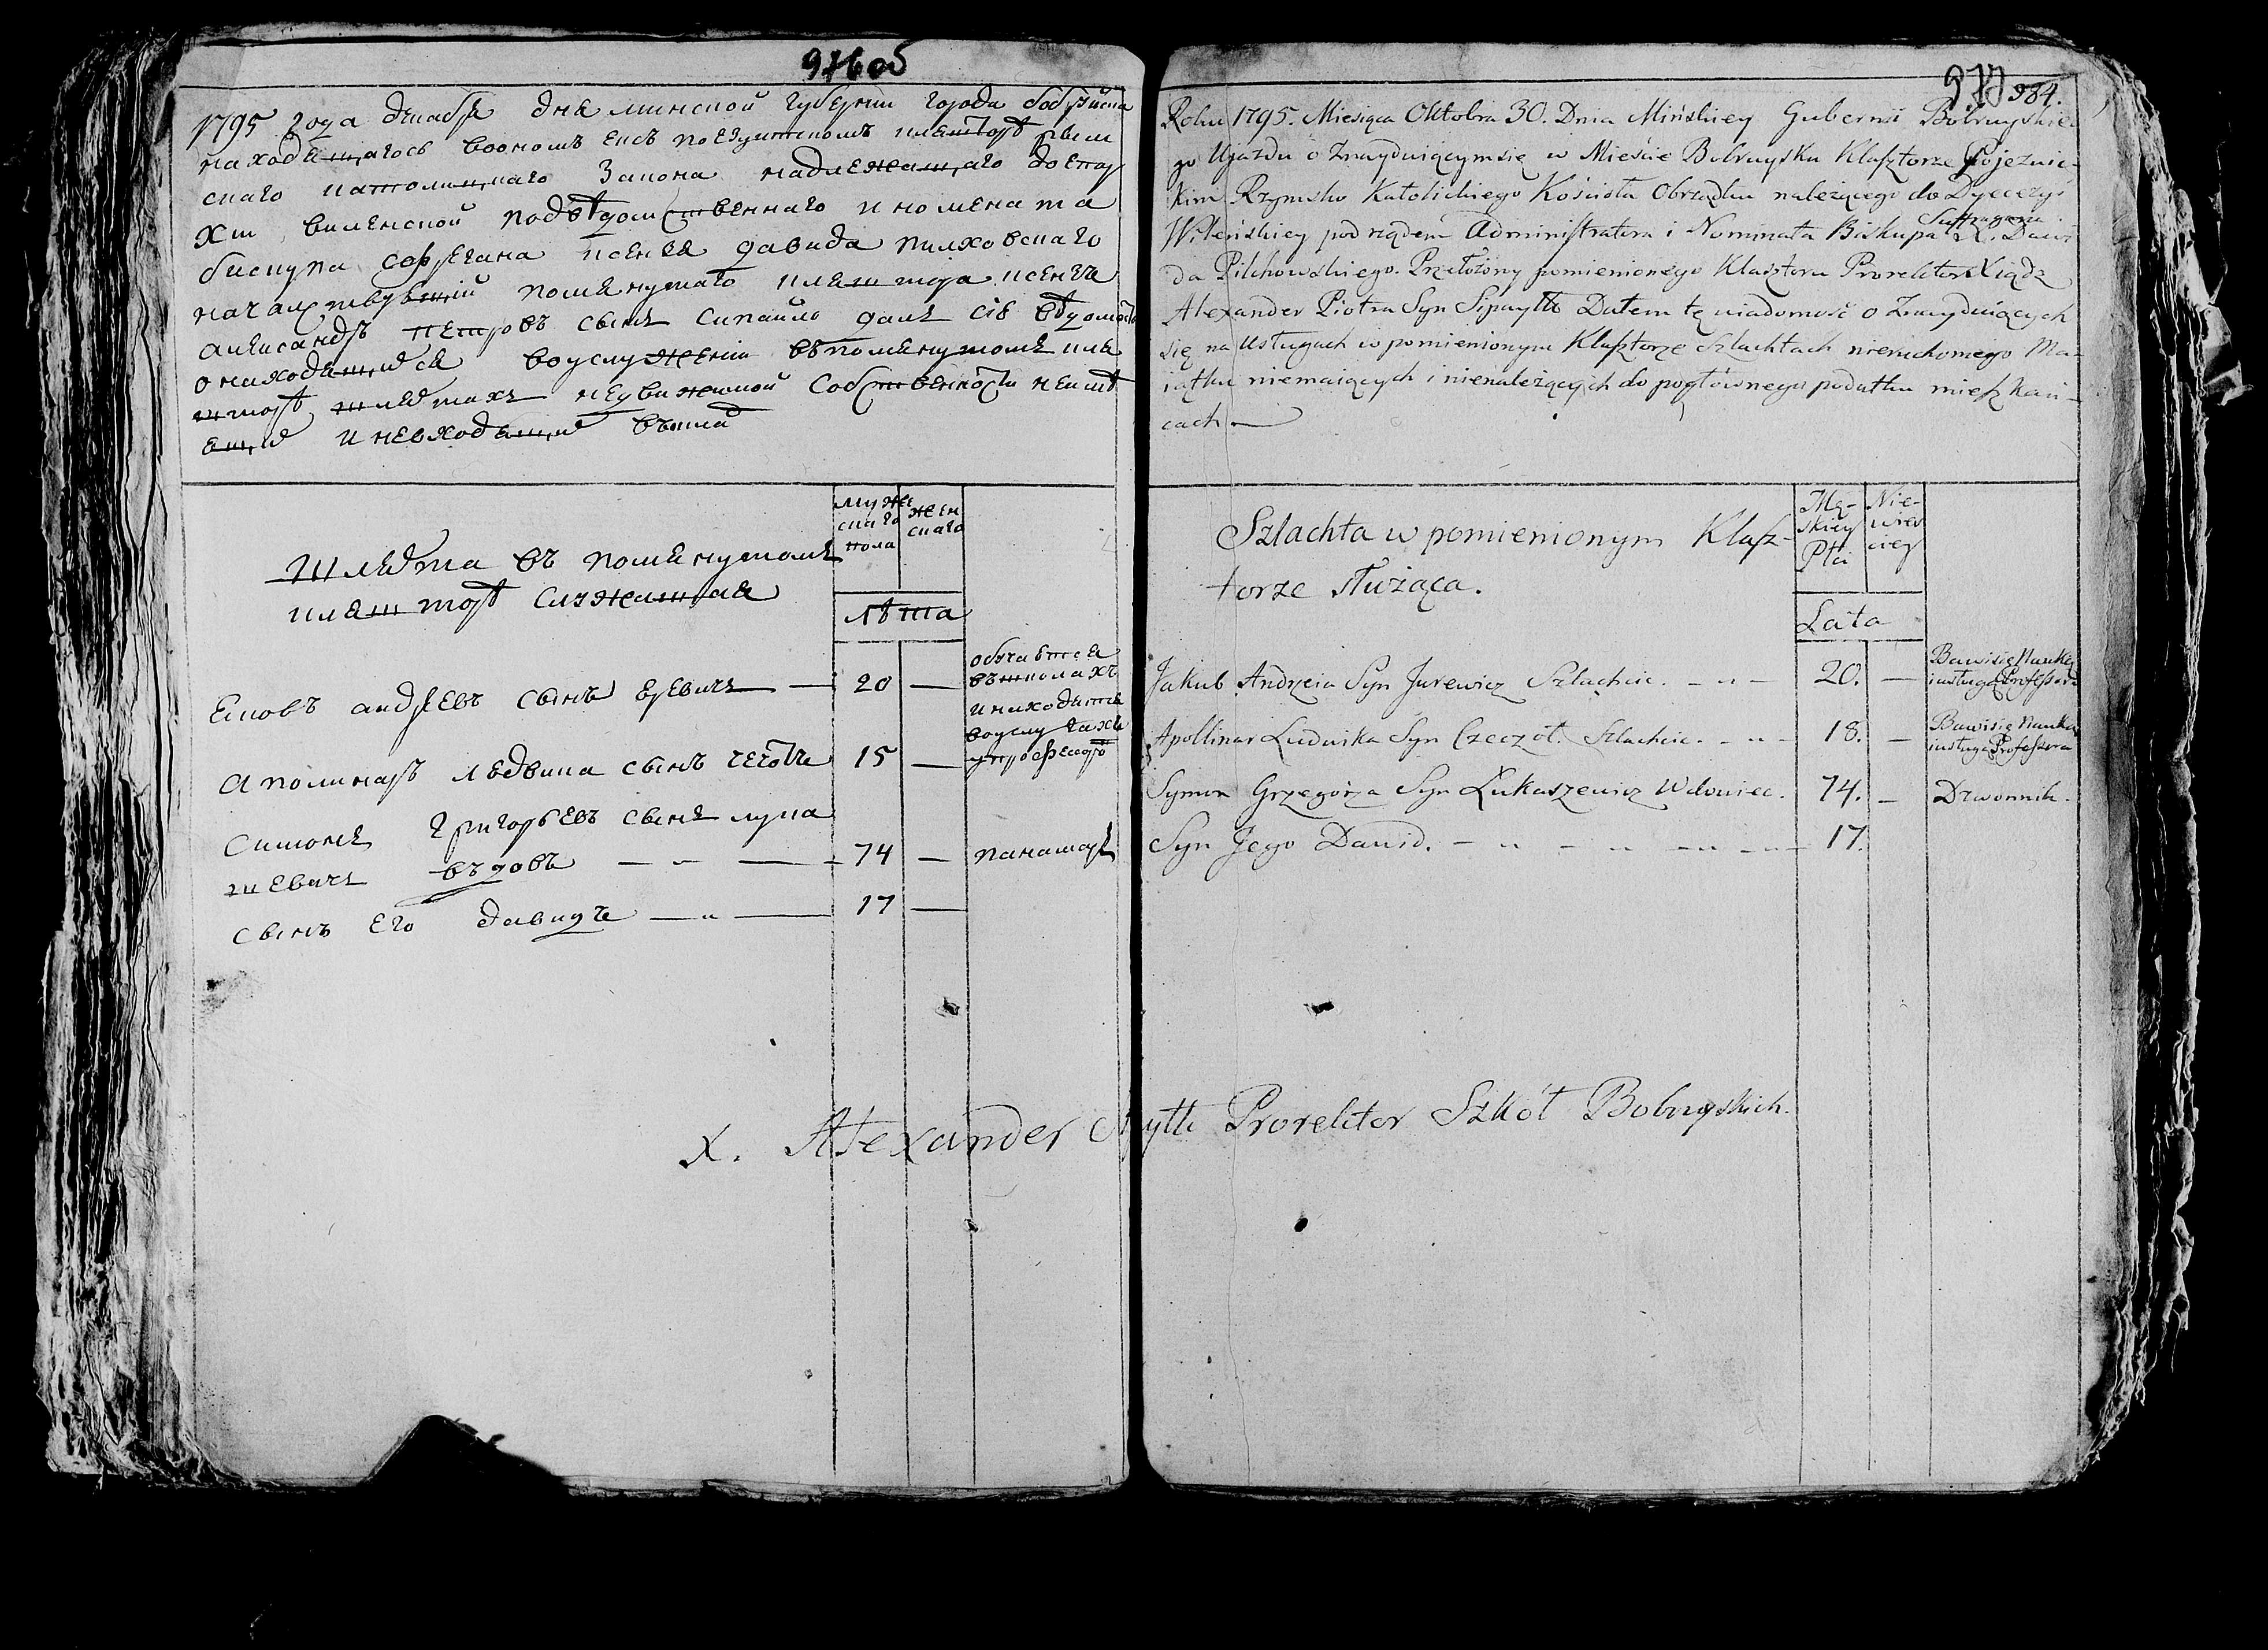 976 об
1795 года декабря дня минской губернии города бобруйска
находящагось воономъ ексъ поезуитскомъ кляшторѣ рым
скаго католицкаго Закона надлежащаго доепар
хїи виленской подвѣдомственнаго и номената
бискупа сафрегана ксендза давида пилховскаго
началствующїй помянутаго кляштора ксендзъ
александръ петровъ сынъ сипайло далъ сїю вѣдомость
онаходящихся воуслуженїи въпомянутомъ кля
шторѣ шляхтахъ недвижимой собственности неимѣ
ющихъ и невходящихъ
Шляхта въ помянутомъ
кляшторѣ служащая
муже
скаго
пола
жен
скаго
лѣта
ековъ андреевъ сынъ юревичъ — 20 —
обучаетса
въшколахъ
и находитса
воуслугахъ
упрофесора
аполинаръ людвика сынъ чечотъ 15 —
симонъ григорьевъ сынъ лука
шевичъ вдовъ — „ — 74 — панамарь
сынъ его давидъ — „ — 17 —
977 984.
Roku 1795. Miesiąca Oktobra 30. Dnia Mińskiey Gubernii Bobruyskie-
go Ujazdu o Znayduiącymsię w Mieście Bobruysku Klasztorze Pojezuic-
kim Rzymsko Katolickiego Kościoła Obrządku należącego do Dyecezyi
Suffragana
Wileńskiey pod rządem Administratora i Nominata Biskupa X. Dawi
da Pilchowskiego. Przełożony pomienionego Klasztoru Prorektor Xiądz
Alexander Piotra Syn Sipayłło Dałem tę wiadomość o Znayduiących
się na Usługach w pomienionym Klasztorze Szlachtach nieruchomego Ma-
iątku niemaiących i nienależących do pogłównego podatku mieszkań-
cach —
Szlachta w pomienionym Klasz-
torze służąca.
Mę-
skiey
Płci
Nie-
wieś
ciey
Lata
Jakub Andrzeia Syn Jurewicz Szlachcic. — „ — 20. —
Bawi się Nauką
i usługą Professora
Apollinar Ludwika Syn Czeczot. Szlachcic. — „ — 18. —
Bawi się Nauką
i usługą Professora
Symon Grzegorza Syn Łukaszewicz Wdowiec. 74. — Dzwonnik.
Syn Jego Dawid. — „ — „ — „ — 17.
X. Alexander Sipayłło Prorektor Szkół Bobruyskich.